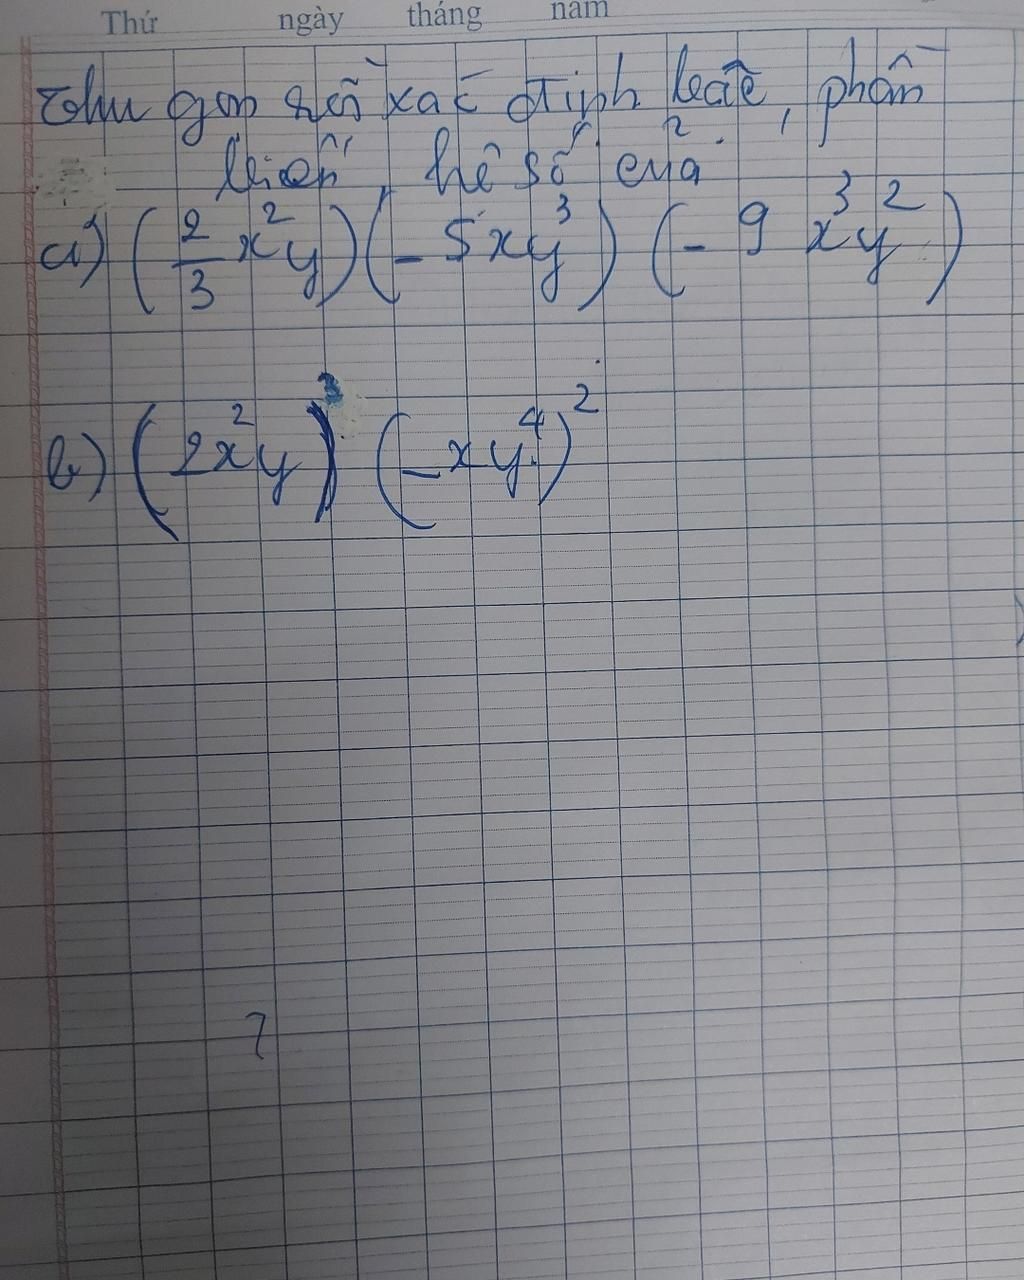 Thứ ngày tháng năm
Thu gọn rồi xác định bậc, phần
biến, hệ số của
a) (2/3 x²y)(-5xy³)(-9x³y²)
b) (2x²y)³ (-xy⁴)²